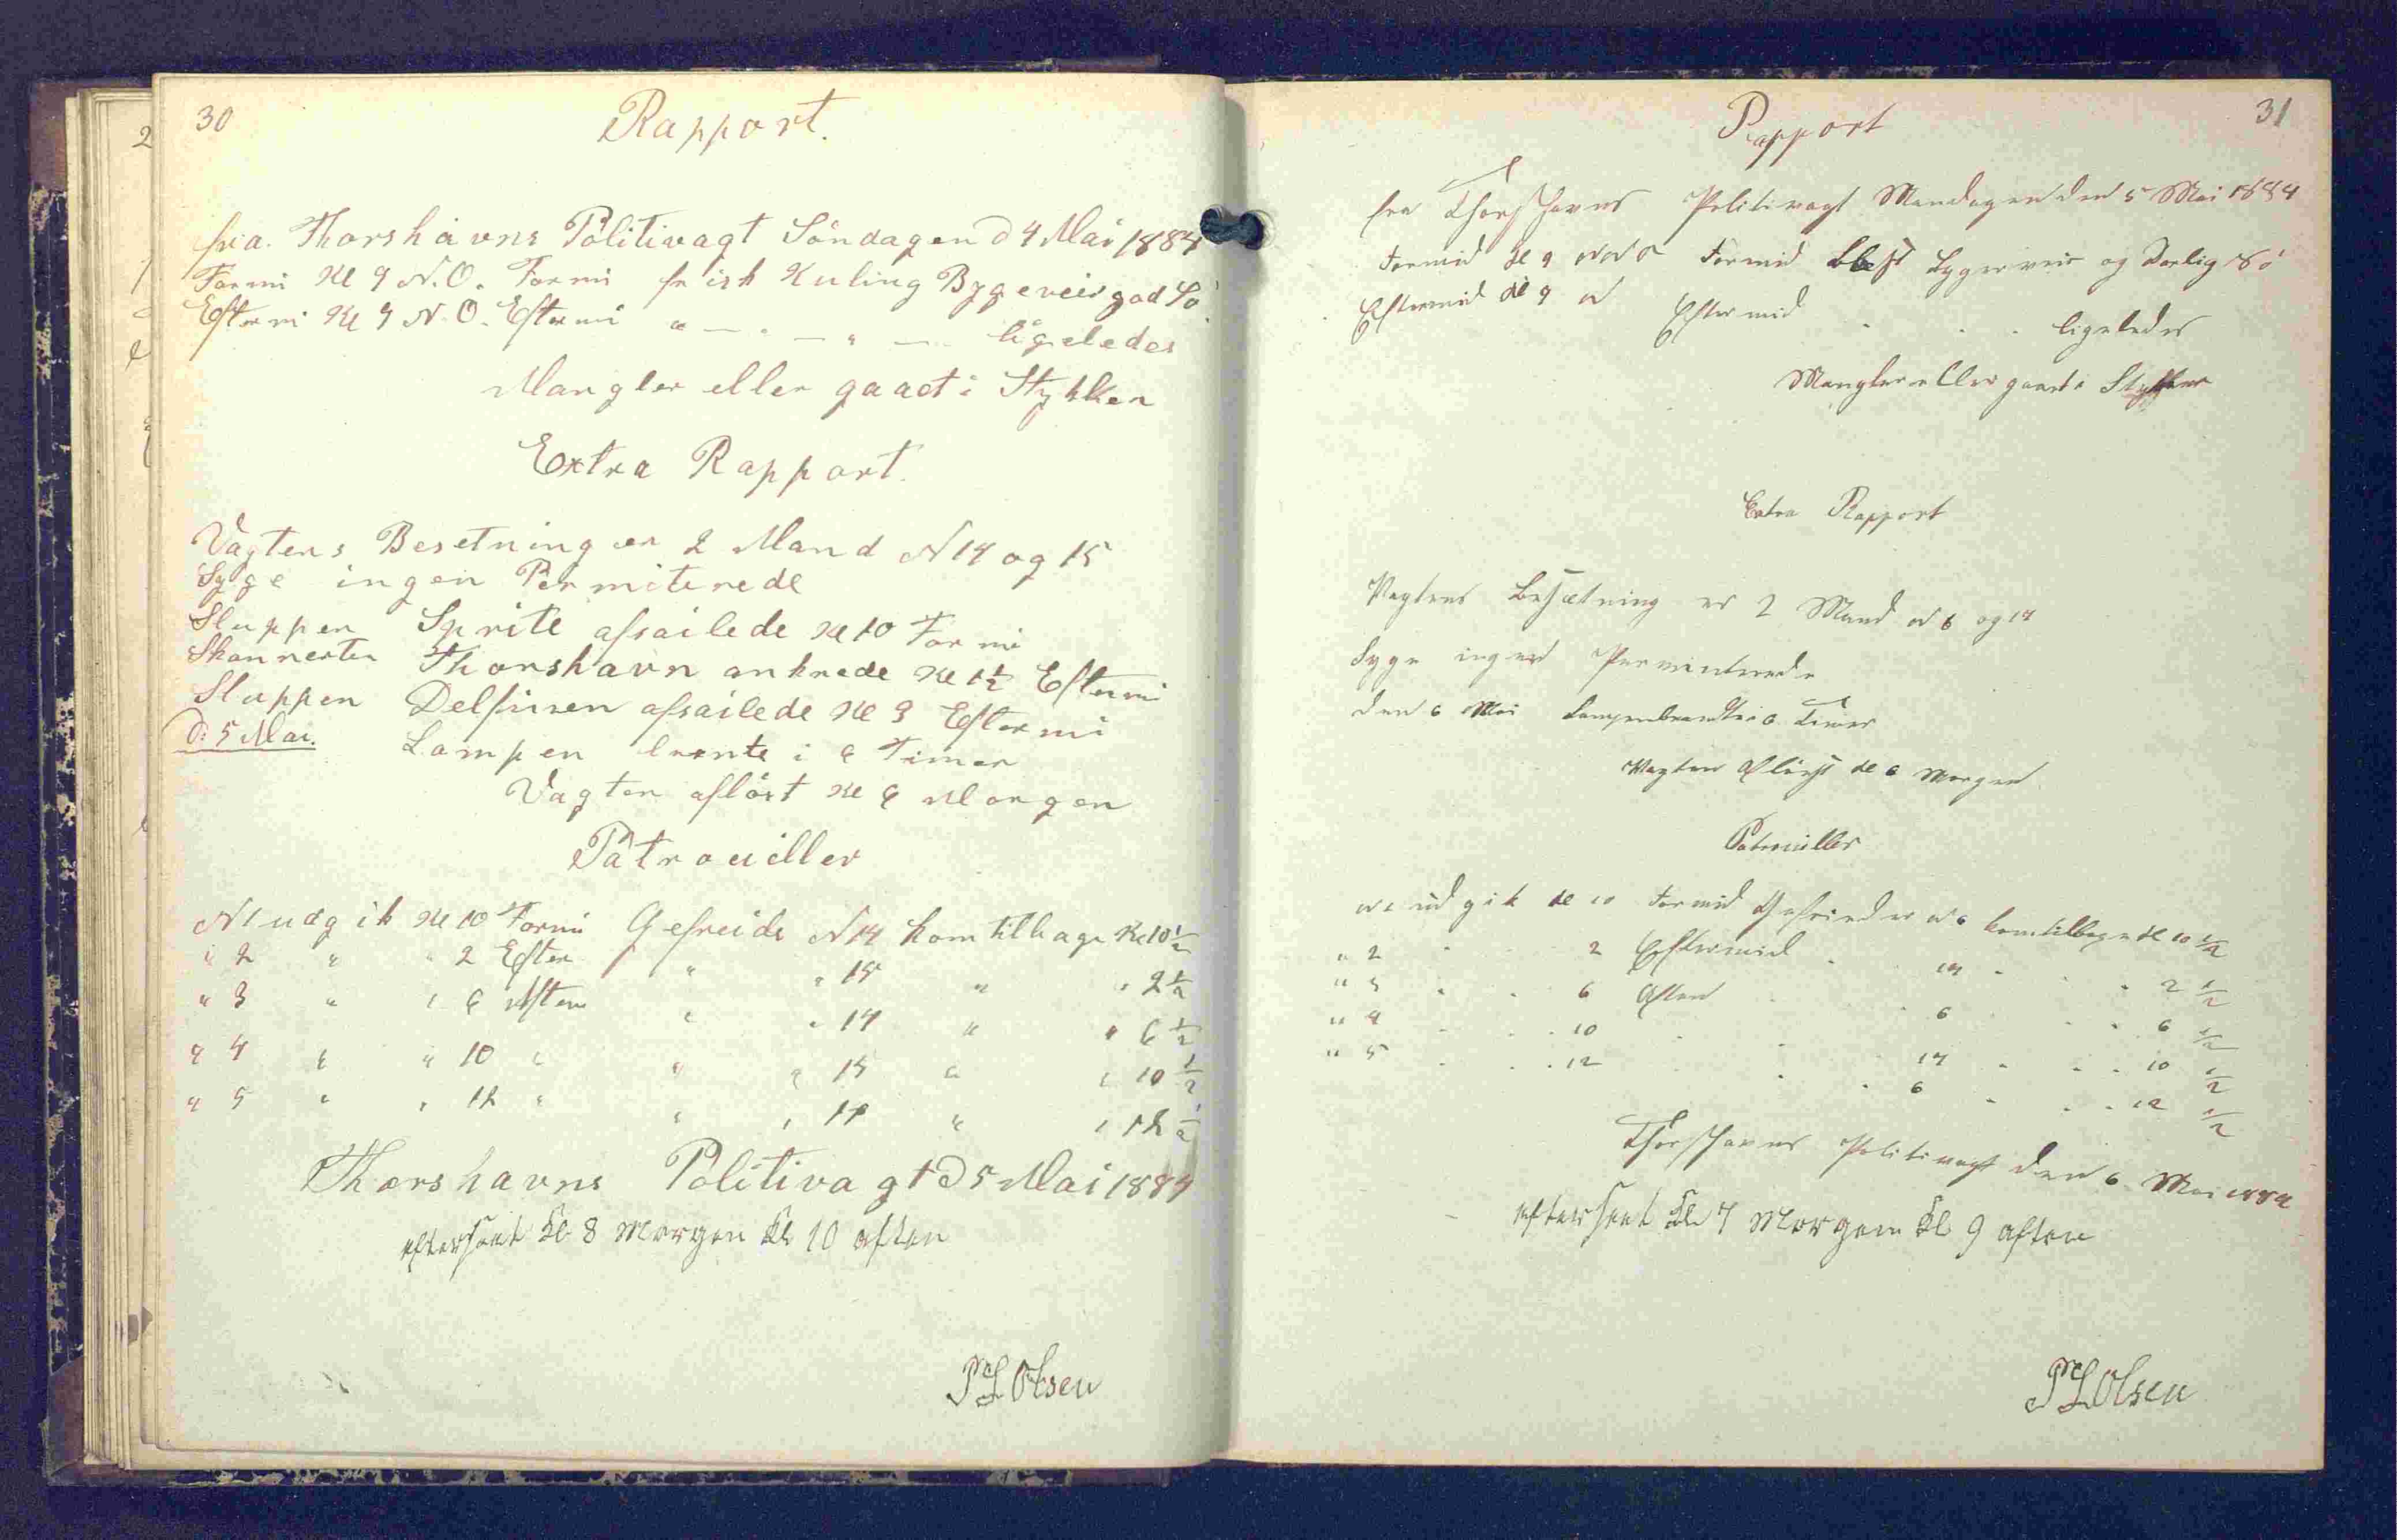 30
Rapport.
fra. Thorshavns Politivagt Söndagen d 4 Mai 1884
Formi Kl 9 N.O. Formi frisk Kuling Bygeveir god Sö
Eftermi Kl 9 N.O. Eftermi " — " — " — ligeledes
Mangler eller gaaet i Stykker
Extra Rapport.
Vagtens Besetning er 2 Mand N 14 og 15
Syge ingen Permiterede
Sluppen Sprite afsailede Kl 10 Formi
Skonnerten Thorshavn ankrede Kl 1½ Eftermi
Sluppen Delfinen afsailede Kl 3 Eftermi
D: 5 Mai. Lampen brente i 6 Timer
Vagten aflöst Kl 6 Morgen
Patrouiller
N 1 udgik Kl 10 Formi Gefreide N 14 kom tilbage Kl 10½
" 2 " " 2 Efter " " 15 " " 2½
" 3 " " 6 Aften " " 14 " " 6½
" 4 " " 10 " " " 15 " " 10½
" 5 " " 12 " " " 14 " " 12½
Thorshavns Politivagt D 5 Mai 1884
efterseet Kl 8 Morgen Kl 10 aften
P L Olsen
31
Rapport
fra Thorshavns Politivagt Mandagen den 5 Mai 1884
Formid Kl 9 N N O Formid Blest Bygerveir og Daarlig Sö
Eftermid Kl 9 N Eftermid " " " ligeledes
Mangler eller gaaet i Stykker
Extra Rapport
Vagtens Besætning er 2 Mand N 6 og 14
Syge ingen Permiterede
den 6 Mai Lampen brendte i 6 Timer
Vagten Aflöst Kl 6 Morgen
Patrouiller
N 1 udgik Kl 10 Formid Gefreider N 6 kom tilbage Kl 10½
" 2 " 2 Eftermid " 14 " " 2½
" 3 " " 6 Aften " 6 " " 6½
" 4 " " 10 " " 14 " " 10½
" 5 " " 12 " " 6 " " 12½
Thorshavns Politivagt den 6 Mai 1884
efterseet Kl 7 Morgen Kl 9 aften
P L Olsen